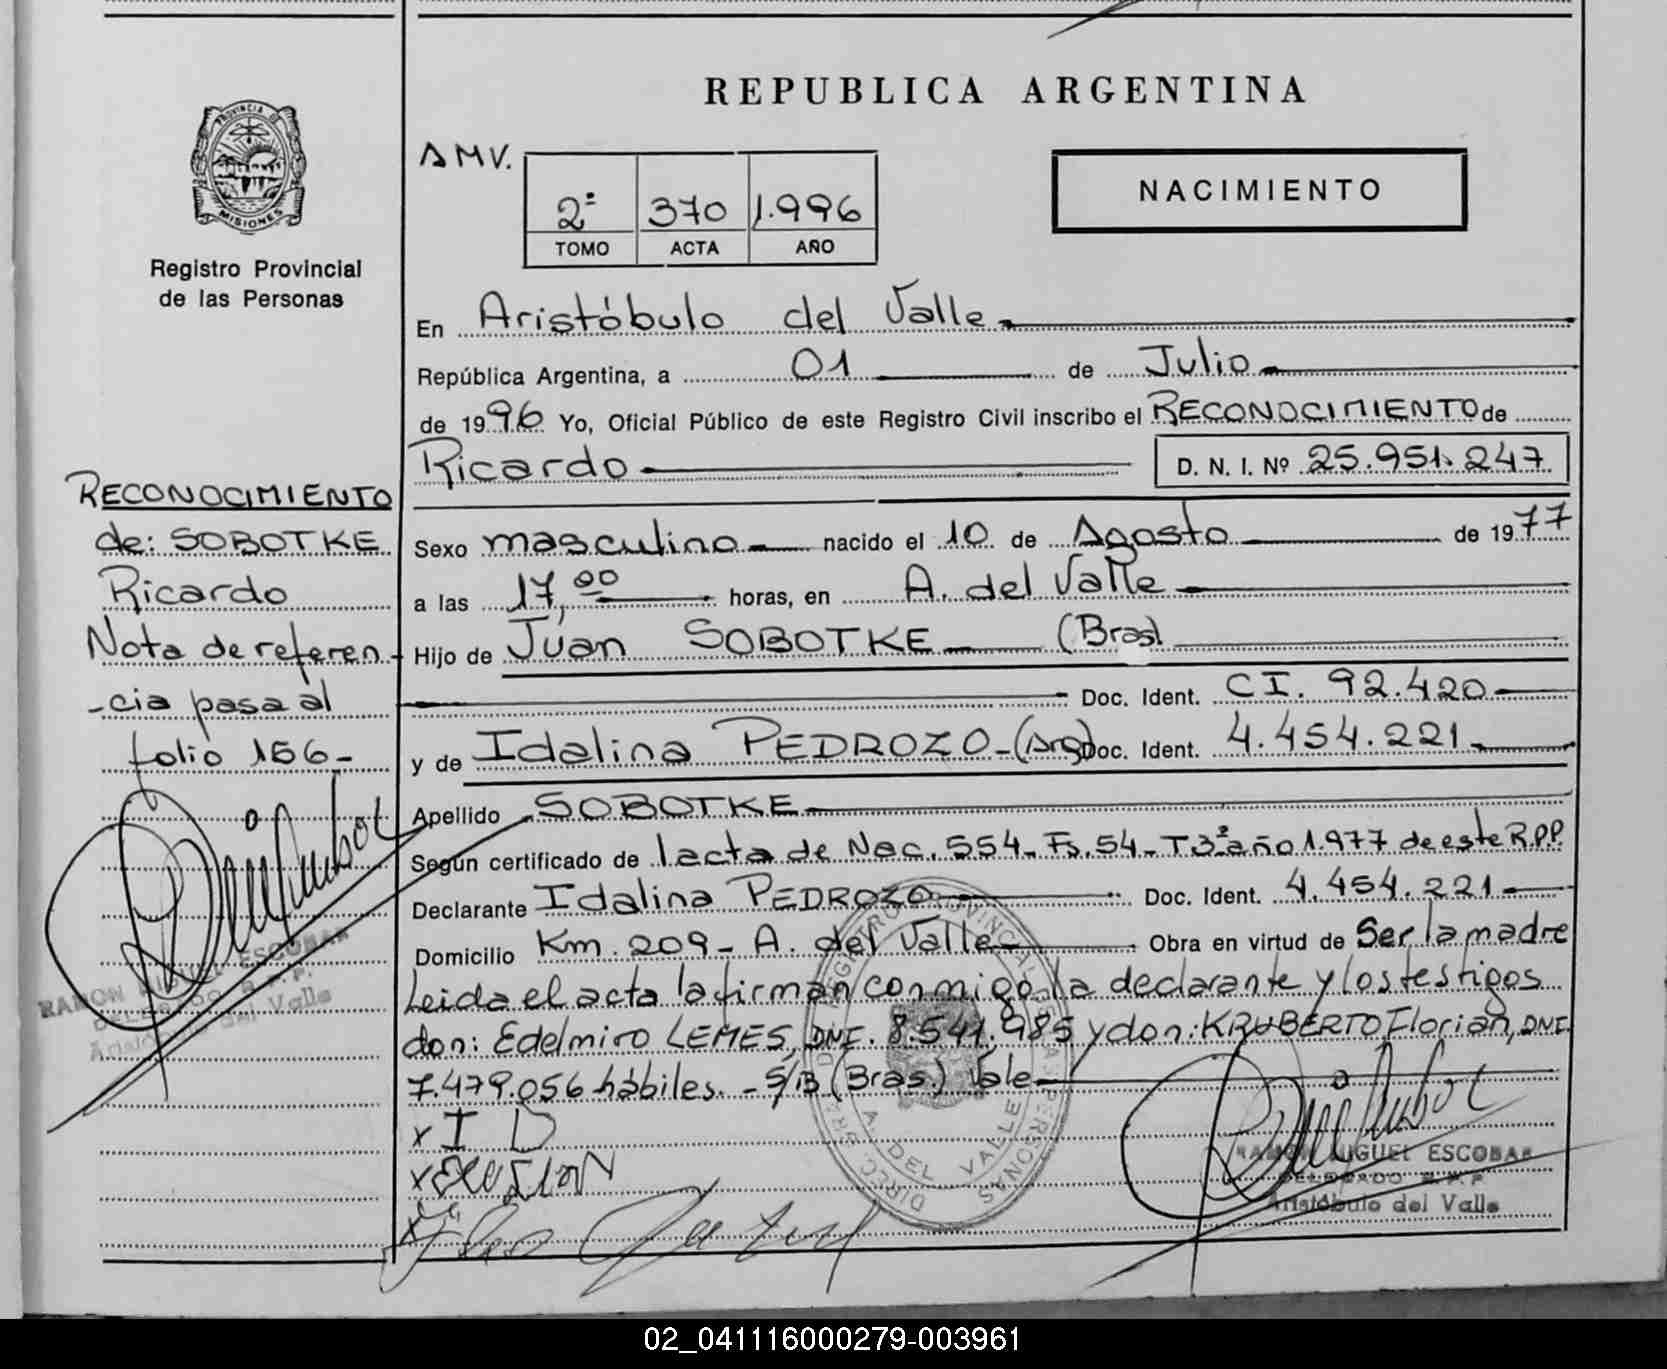 REPUBLICA ARGENTINA
PROVINCIA DE
MISIONES
Registro Provincial
de las Personas
AMV.
2ª 370 1.996
TOMO ACTA AÑO
NACIMIENTO
En Aristóbulo del Valle
República Argentina, a 01 de Julio
de 1996 Yo, Oficial Público de este Registro Civil inscribo el RECONOCIMIENTO de
Ricardo D. N. I. Nº 25.951.247
Sexo masculino nacido el 10 de Agosto de 1977
a las 17,00 horas, en A. del Valle
Hijo de Juan SOBOTKE (Bras).
Doc. Ident. CI. 92.420
y de Idalina PEDROZO-(Arg) Doc. Ident. 4.454.221
Apellido SOBOTKE
Según certificado de 1 acta de Nac. 554-Fs.54-T3ª año 1.977 de este R.P.P.
Declarante Idalina PEDROZO Doc. Ident. 4.454.221
Domicilio Km. 209- A. del Valle Obra en virtud de Ser la madre
Leida el acta la firman conmigo la declarante y los testigos
don: Edelmiro LEMES, DNI. 8.541.985 y don: KRUBERTO Florian, DNI.
7.479.056 hábiles. - S/B (Bras.) Vale
x I D
RAMON MIGUEL ESCOBAR
DELEGADO R.P.P.
Aristóbulo del Valle
DIREC. GRAL. DE REGISTRO PROVINCIAL DE LAS PERSONAS
A. DEL VALLE
RECONOCIMIENTO
de: SOBOTKE
Ricardo
Nota de referen-
-cia pasa al
folio 156-
RAMON MIGUEL ESCOBAR
DELEGADO R.P.P.
Aristóbulo del Valle
02_041116000279-003961